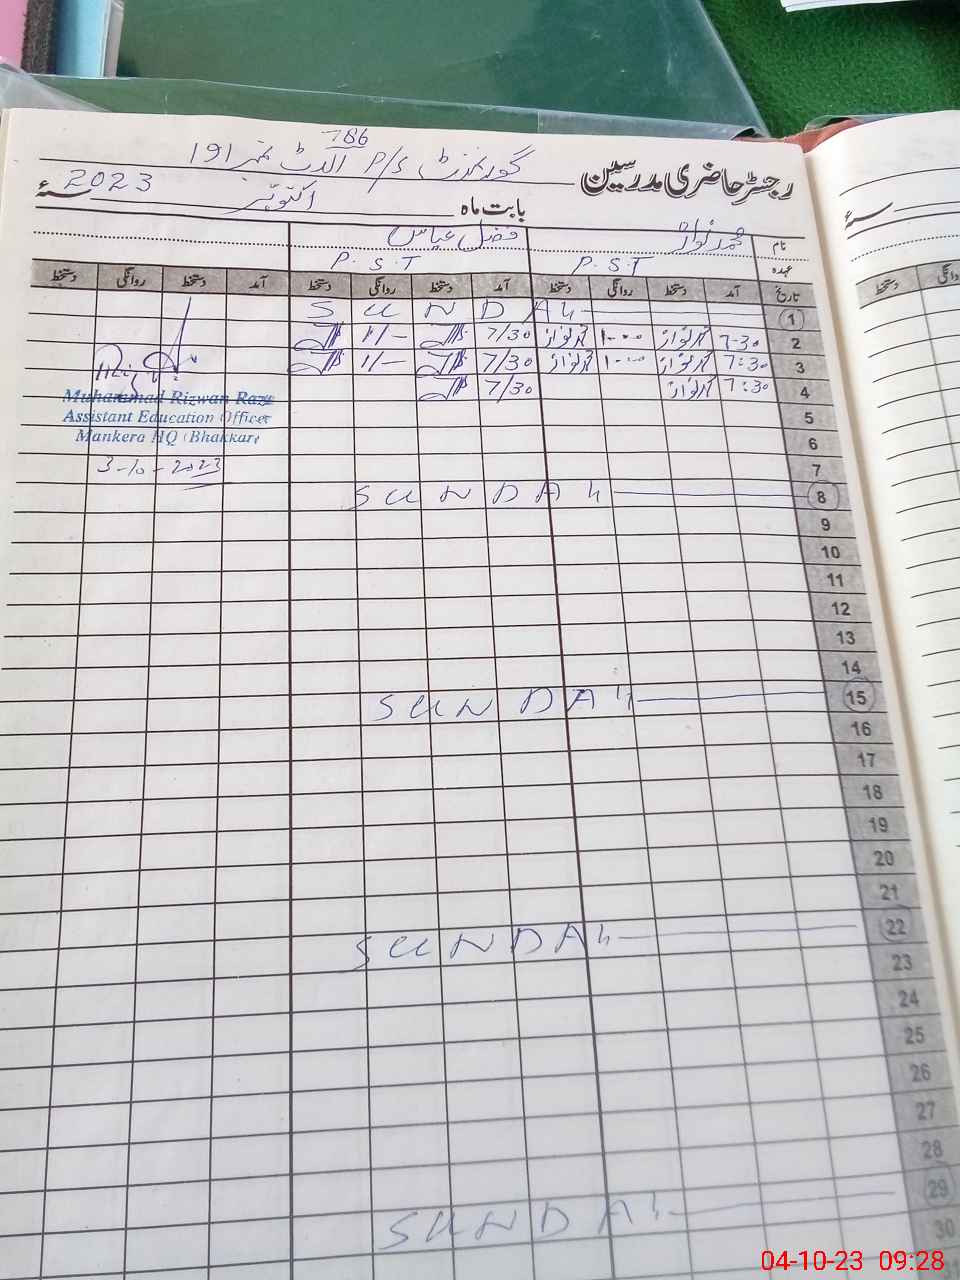 786
رجسٹر حاضری مدرسین گورنمنٹ P/S الدٹ نمبر 191
بابت ماہ اکتوبر 2023 سنہء
نام محمد نواز فضل عباس
عہدہ P.S.T P.S.T
تاریخ آمد دستخط روانگی دستخط آمد دستخط روانگی دستخط آمد دستخط روانگی دستخط
1 SUNDAY
2 7-30 محمد نواز 1-00 محمد نواز 7/30 1/-
3 7:30 محمد نواز 1-00 محمد نواز 7/30 1/-
4 7:30 محمد نواز 7/30
Muhammad Rizwan Raza
Assistant Education Officer
Mankera HQ (Bhakkar)
3-10-2023
5
6
7
8 SUNDAY
9
10
11
12
13
14
15 SUNDAY
16
17
18
19
20
21
22 SUNDAY
23
24
25
26
27
28
29 SUNDAY
30
سنہء
روانگی دستخط
04-10-23 09:28